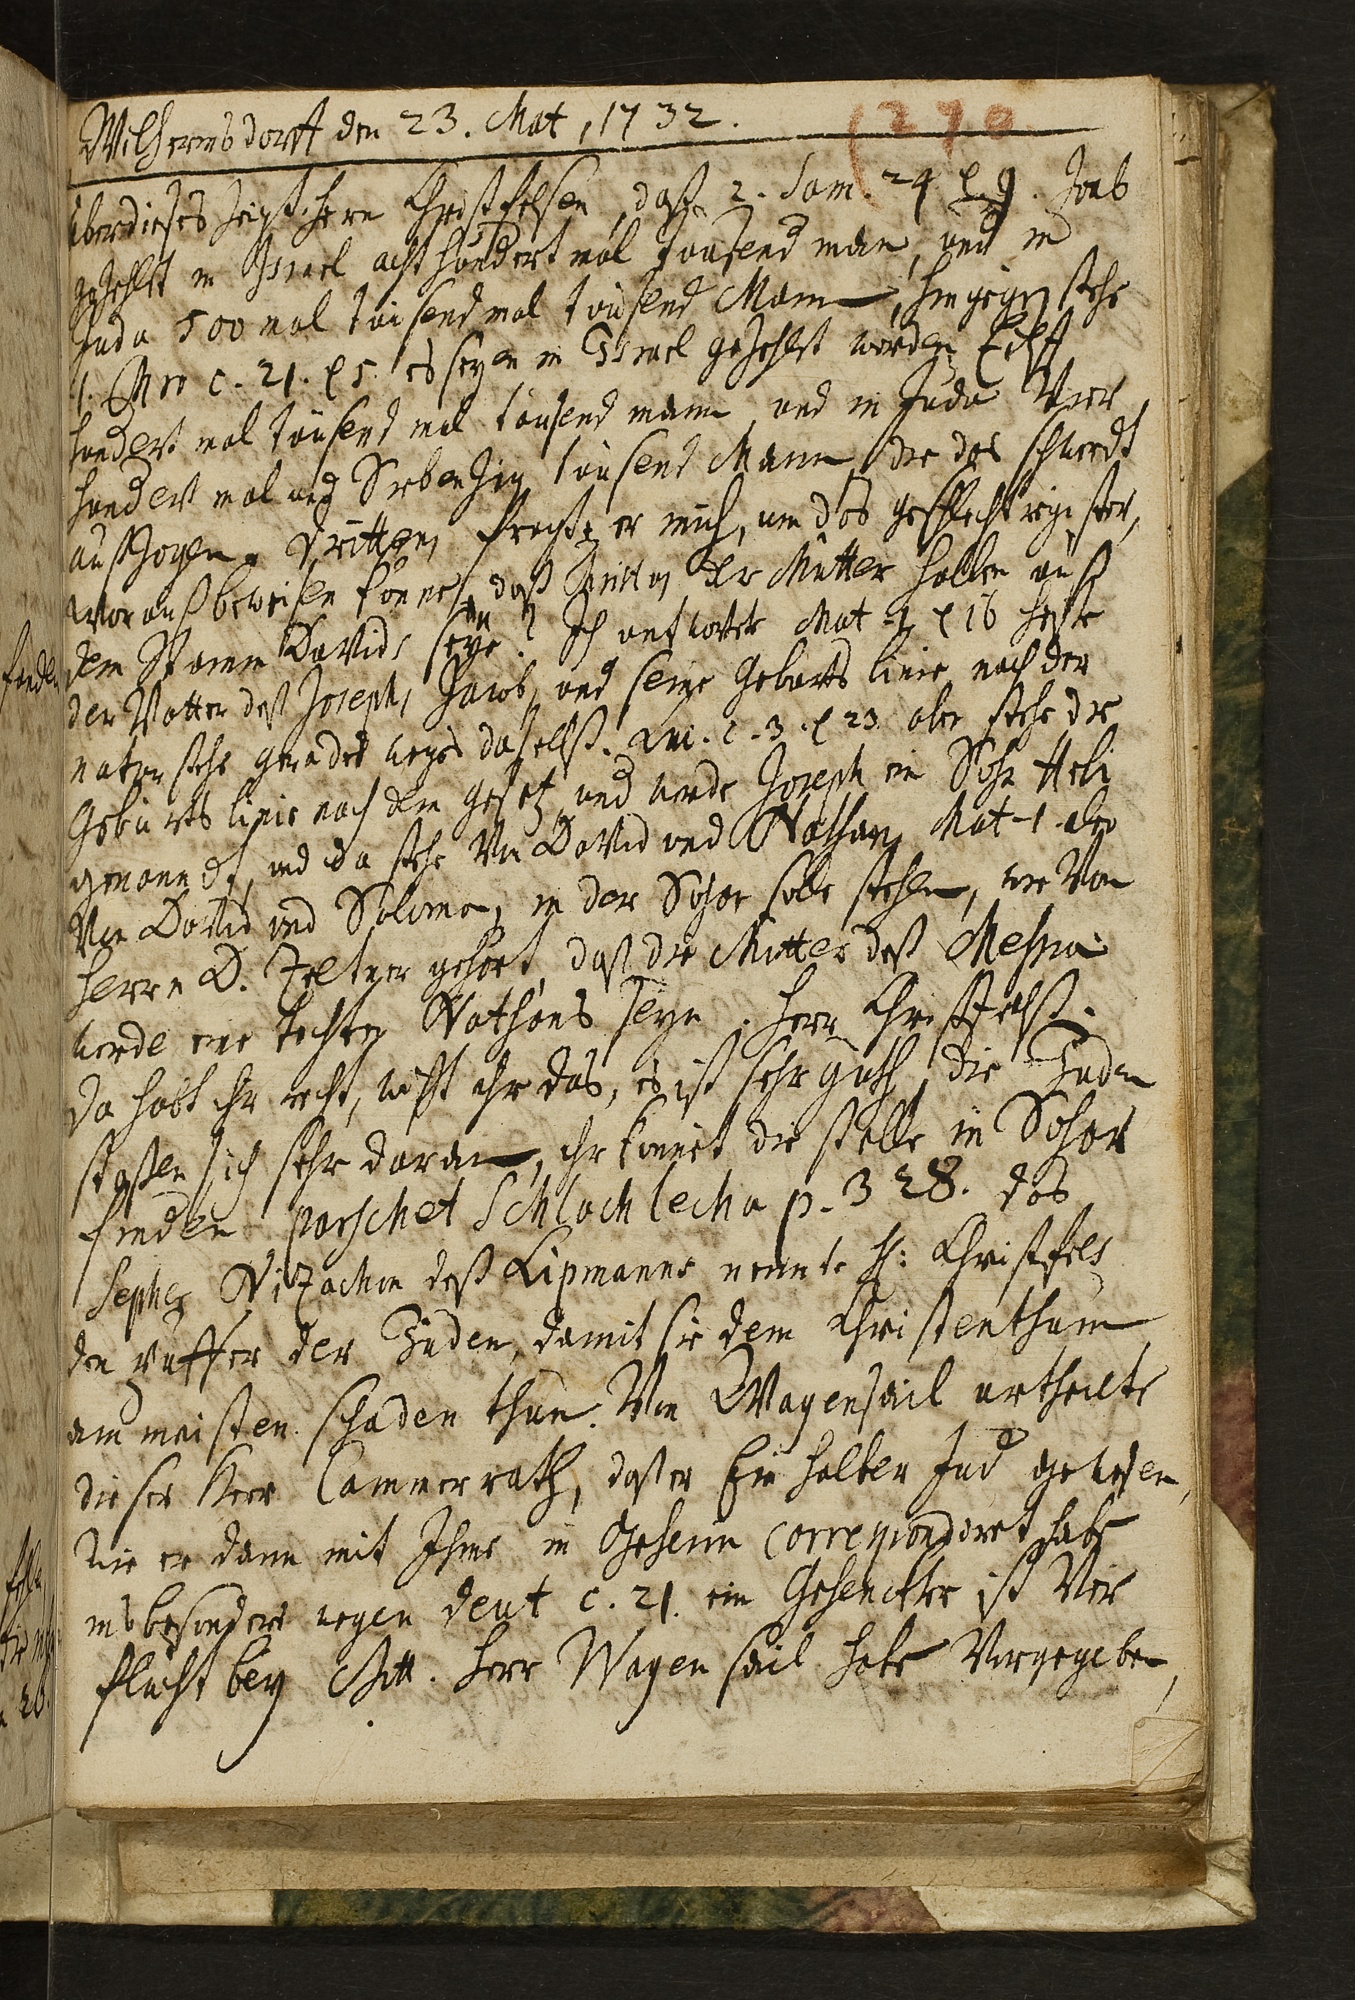 Wilhermsdorff den 23. Mat, 1732. (270
überdieses zeigt herr Christfelsen, daß 2. Sam. 24 v 9. Joab
gezehlt in Israel acht hundert mal tausend man, und in
Juda 500 mal tausend mal tausend Mann, hingegen stehe
1. Chro c. 21. v 5. es seyen in Israel gezehlt worden Eilff
hundert mal tausend mal tausend mann, und in Juda Vier
hundert mal und Siebenzig tausend Mann die das schwerdt
außzogen. Drittens fragte er mich, um das geschlechtregister,
worauß beweisen könne, daß der Mutter halben auß
dem Stamm Davids seye? Ich antwortete Mat 1 v 16 heiße
der Vatter deß Josephs Jacob, und seine Geburts linie nach der
natur stehe gerades weges daselbst. Luc. c. 3. v 23 aber stehe die
Geburts linie nach dem gesetz und werde Joseph ein Sohn Heli
genanndt, und da stehe Von David und Nathan, Mat 1. aber
Von David und Salomo, in der Sohar solle stehen, wie Von
herrn D. Zeltner gehört, daß die Mutter deß Messiä
werde eine tochter Nathans seyn. herr Christfelß.
Da habt ihr recht, wißt ihr das, es ist sehr guth, die Juden
stoßen sich sehr daran, ihr könnet die stelle in Sohar
finden parschet Schlach lecha p. 328. das
Sepher Nizachon deß Lipmanns nennte H: Christfels
den puffer der Juden, damit sie dem Christenthum
am meisten schaden thun. Von Wagensail urtheilte
dieser Herr Cammerrath, daß er Ein halber Jud gewesen,
wie er dann mit Ihme in Geheim correspondiret habe
insbesondere wegen deut c. 21. ein Gehenckter ist Ver
flucht bey Gott. Herr Wagensail habe Vorgegeben,